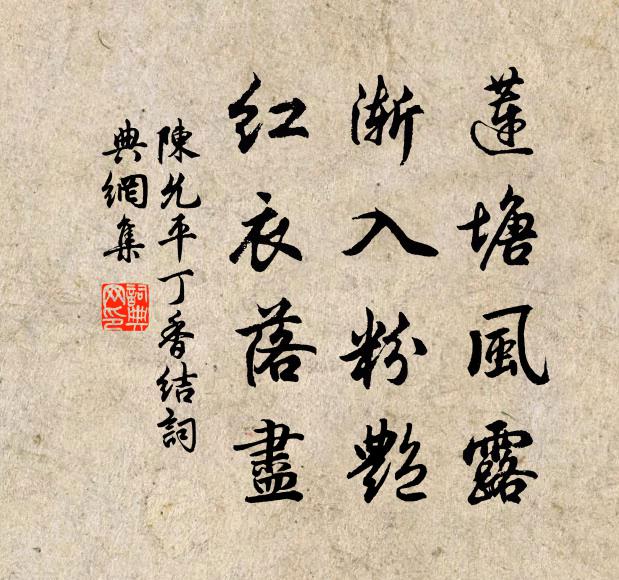 蓮塘風露
漸入粉艷
紅衣落盡
陳允平丁香結詞
典網集
詞典網印